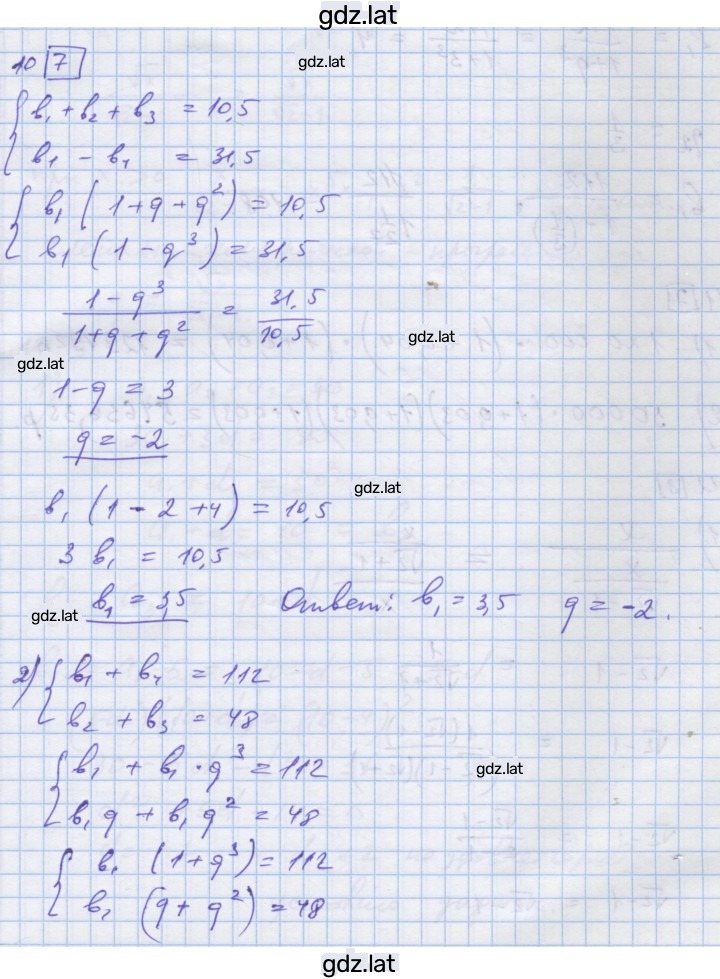 gdz.lat
10 7
gdz.lat
b₁ + b₂ + b₃ = 10,5
b₁ − b₄ = 31,5
b₁ (1 + q + q²) = 10,5
b₁ (1 − q³) = 31,5
1 − q³ / 1 + q + q² = 31,5 / 10,5
gdz.lat
gdz.lat
1 − q = 3
q = −2
gdz.lat
b₁ (1 − 2 + 4) = 10,5
3 b₁ = 10,5
b₁ = 3,5 Ответ: b₁ = 3,5 q = −2.
gdz.lat
2) b₁ + b₄ = 112
b₂ + b₃ = 48
b₁ + b₁ · q³ = 112
gdz.lat
b₁ q + b₁ q² = 48
b₁ (1 + q³) = 112
b₁ (q + q²) = 48
gdz.lat